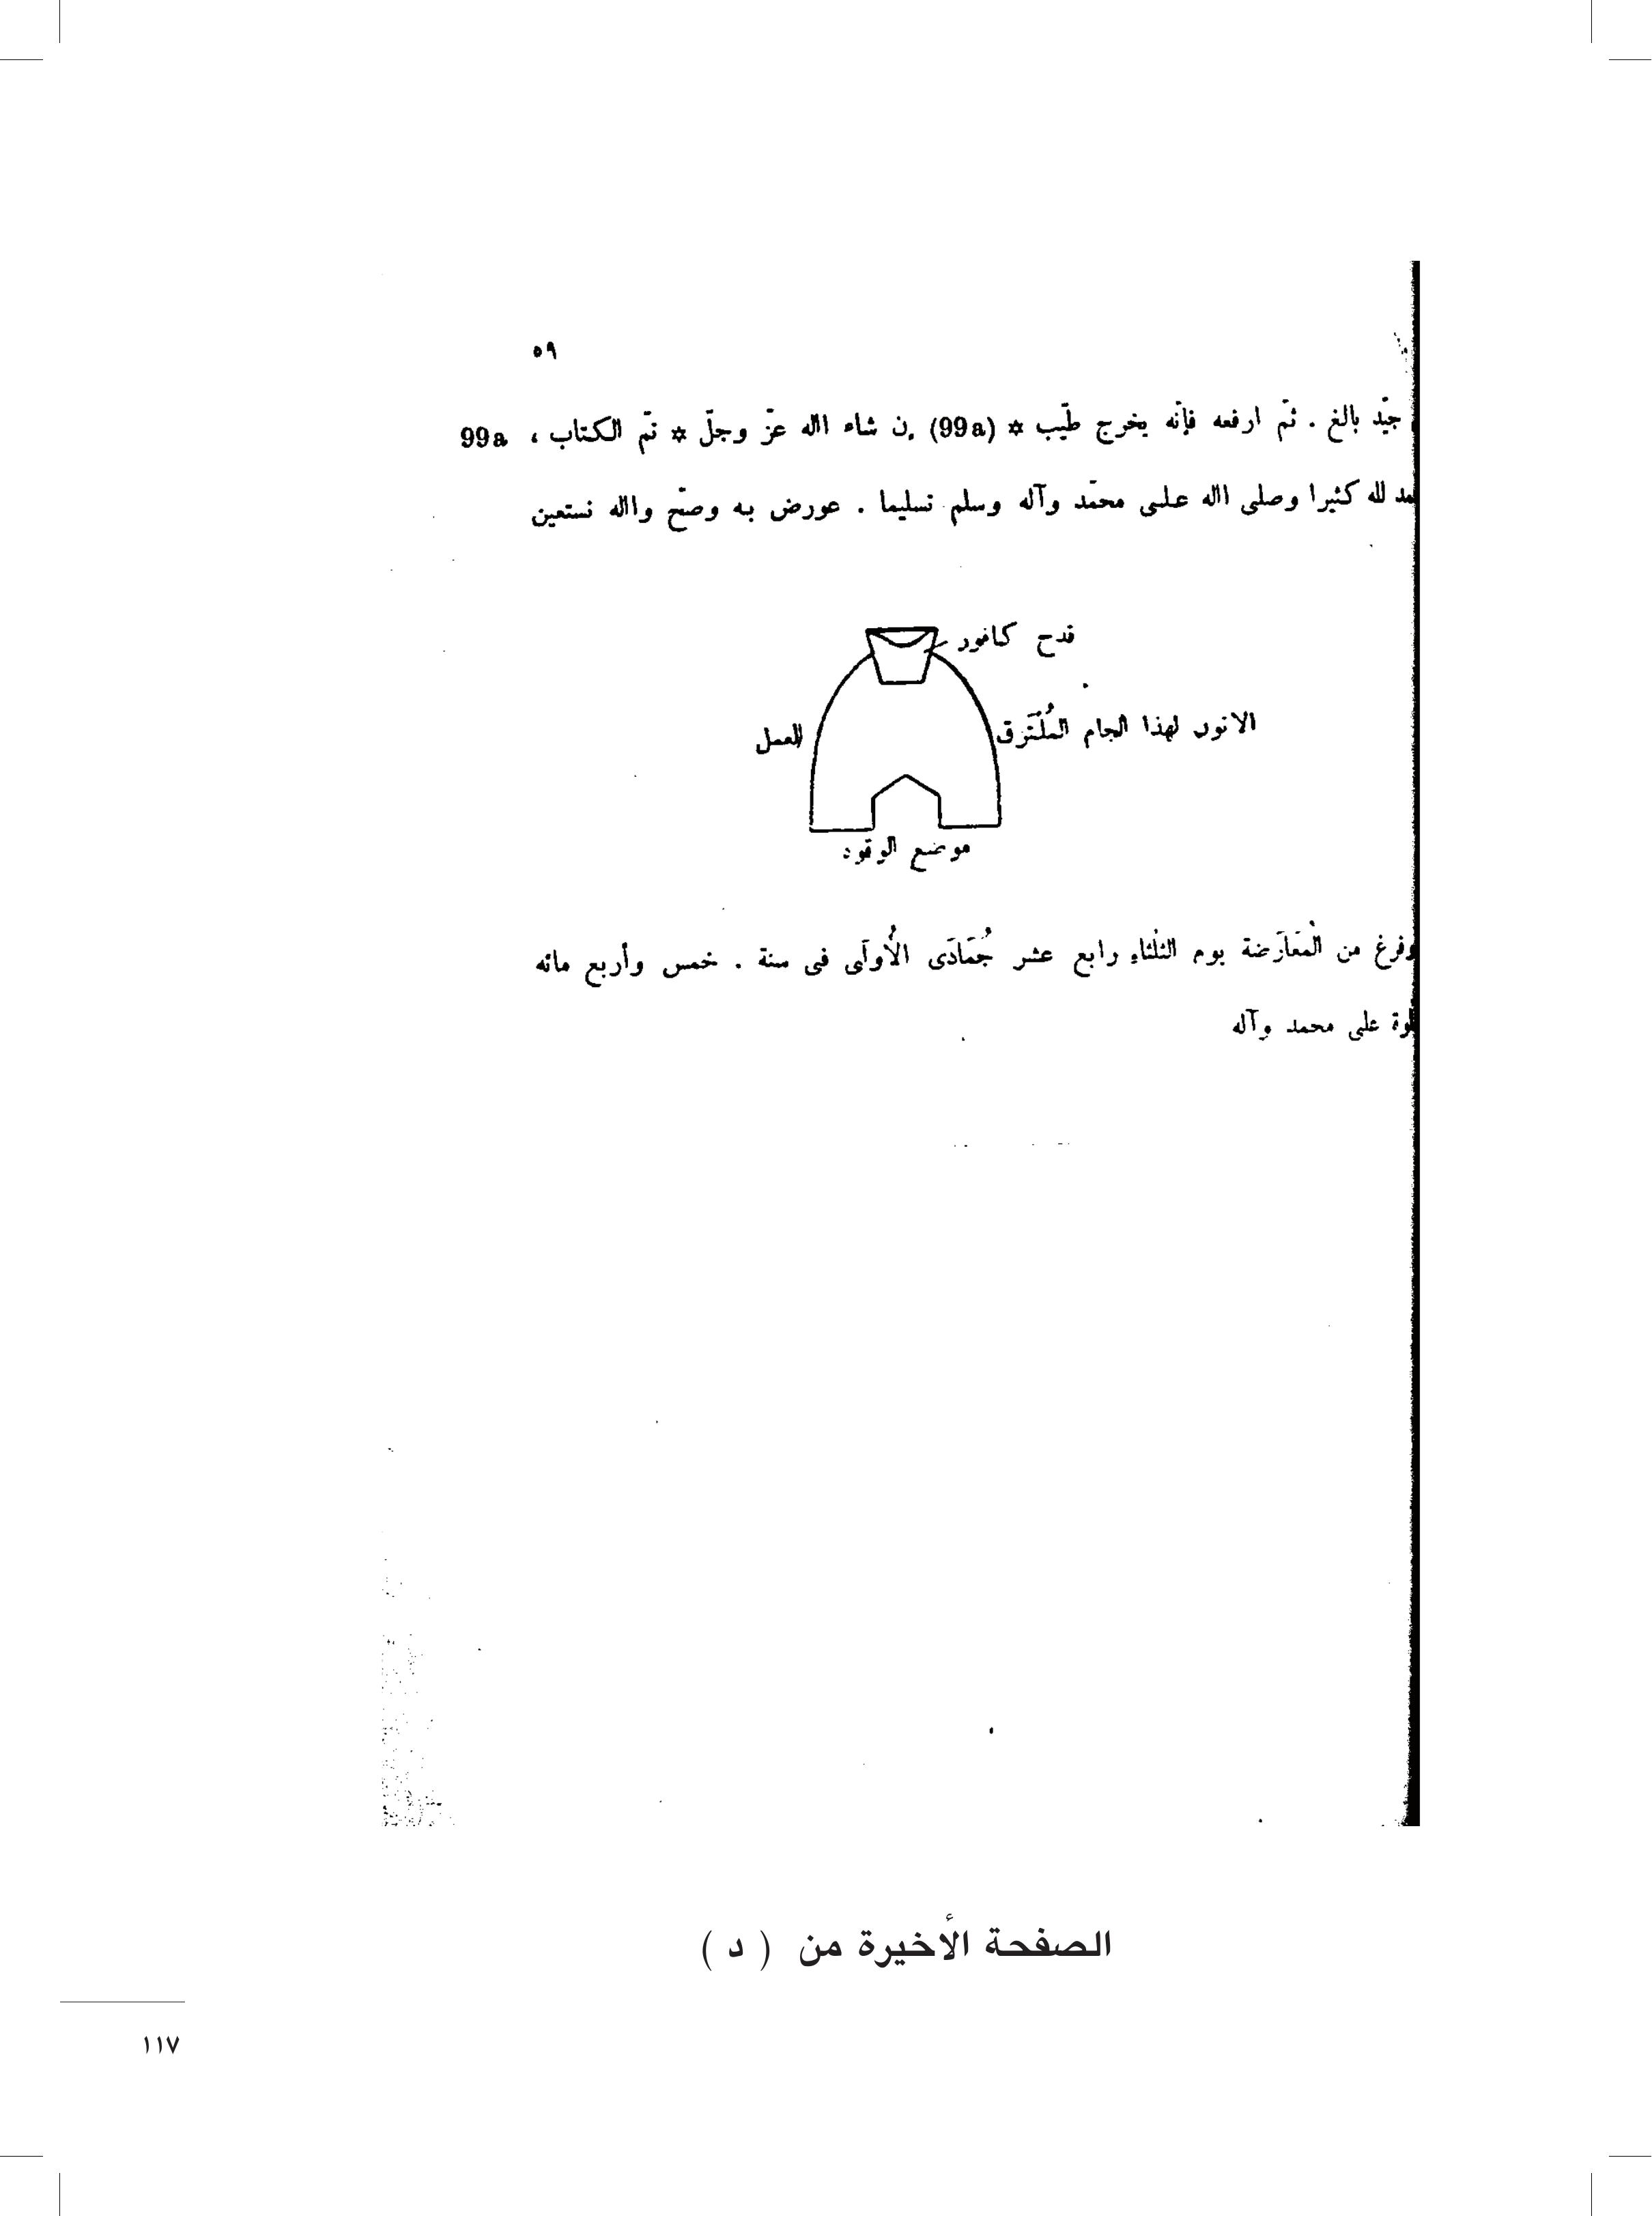 ٥٩
جيّد بالغ . ثمّ ارفعه فإنّه يخرج طيّب * (99a) إن شاء االله عزّ وجلّ * تمّ الكتاب ، 99a
مد لله كثيرا وصلى االله على محمّد وآله وسلم تسليما . عورض به وصحّ واالله نستعين
قدح كافور
الاتون لهذا الجام المُلْتَزق
للعمل
موضع الوقود
وفرغ من الْمَعَارَضة يوم الثلثاء رابع عشر جُمَادَى الأُولَى فى سنة . خمس وأربع مائه
لوة على محمد وآله
الصفحة الأخيرة من ( د )
١١٧